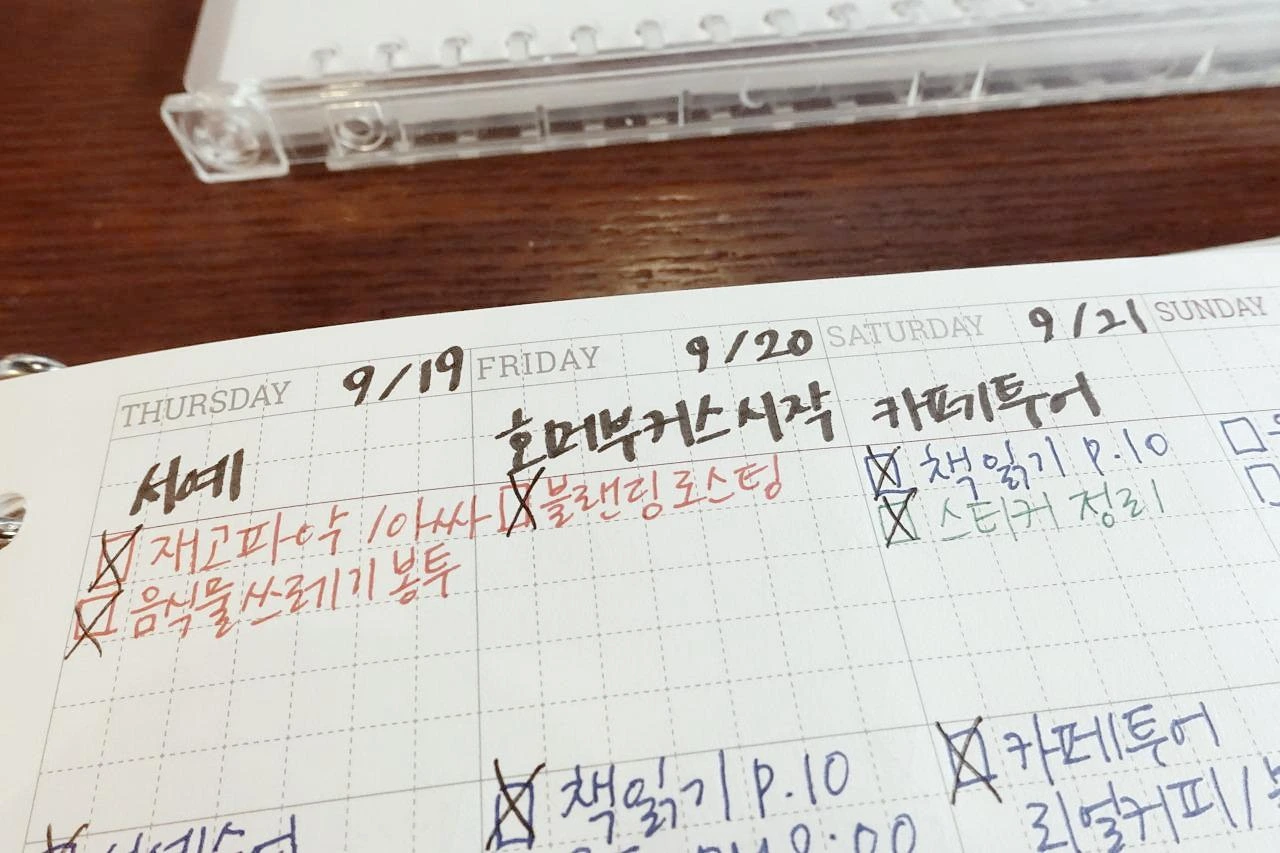 THURSDAY 9/19
서예
재고파악 /아싸
음식물쓰레기봉투
FRIDAY 9/20
홈머부커스시작
블랜딩로스팅
책읽기 P.10
SATURDAY 9/21
카페투어
책읽기 P.10
스티커 정리
카페투어
리얼커피/
SUNDAY